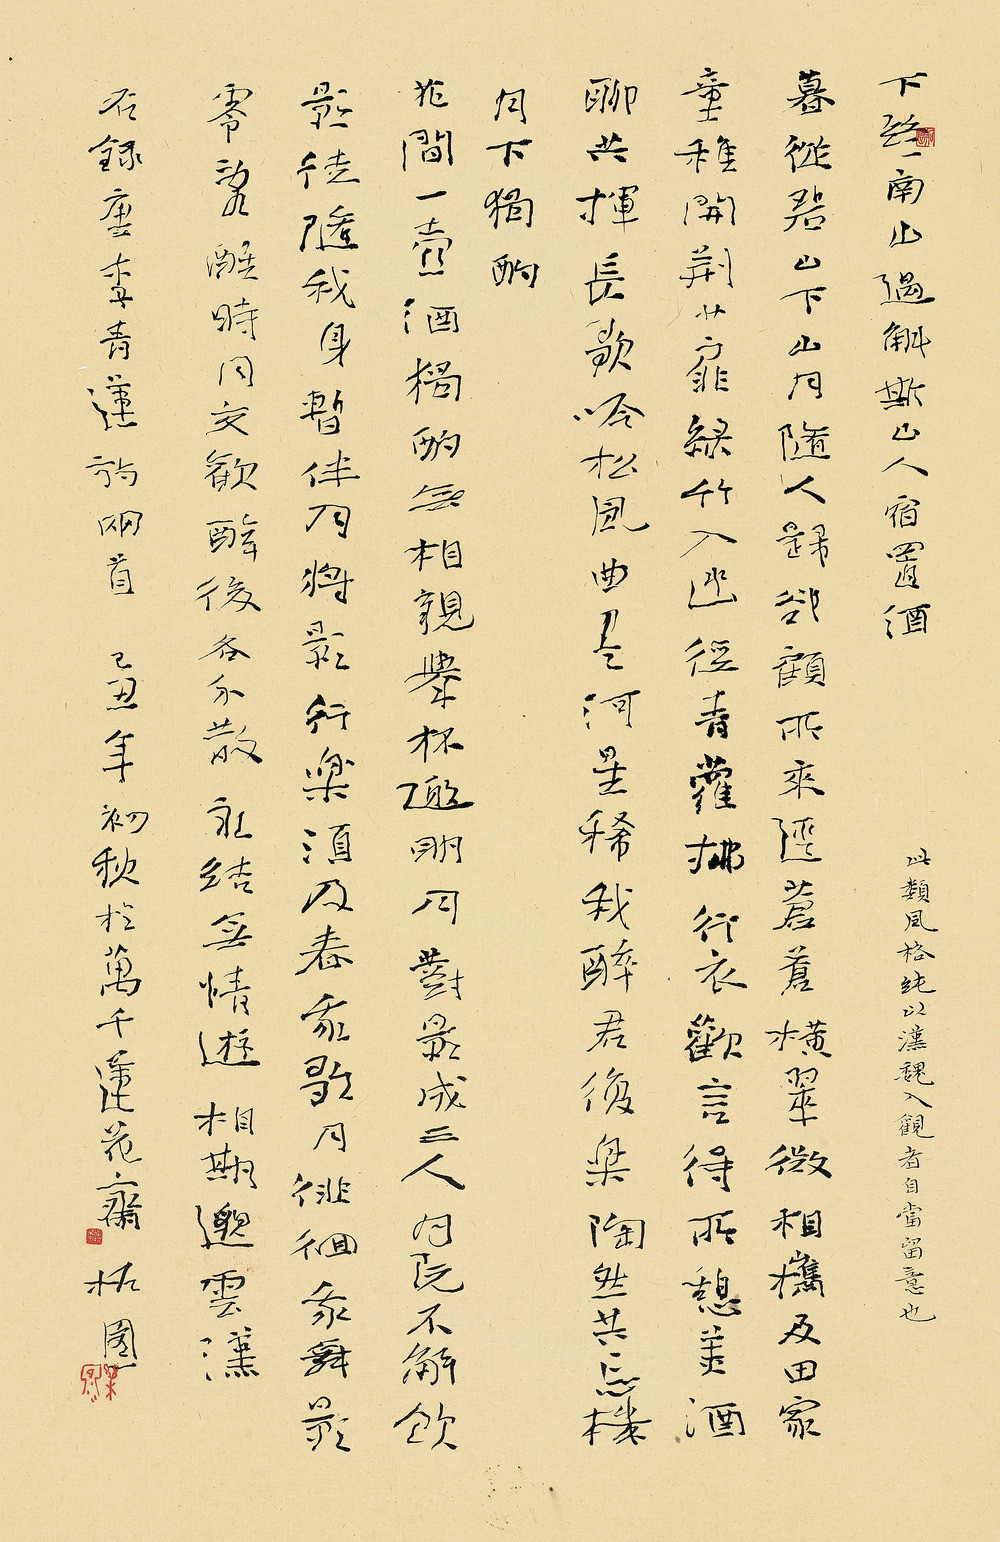 下終南山過斛斯山人宿置酒
此類風格純以漢魏入觀者自當留意也
暮從碧山下山月隨人歸卻顧所來逕蒼蒼橫翠微相攜及田家
童稚開荊扉綠竹入幽徑青蘿拂行衣歡言得所憩美酒
聊共揮長歌吟松風曲盡河星稀我醉君復樂陶然共忘機
月下獨酌
花間一壺酒獨酌無相親舉杯邀明月對影成三人月既不解飲
影徒隨我身暫伴月將影行樂須及春我歌月徘徊我舞影
零亂醒時同交歡醉後各分散永結無情遊相期邈雲漢
右錄唐李青蓮詩兩首 己丑年初秋於萬千蓮花齋